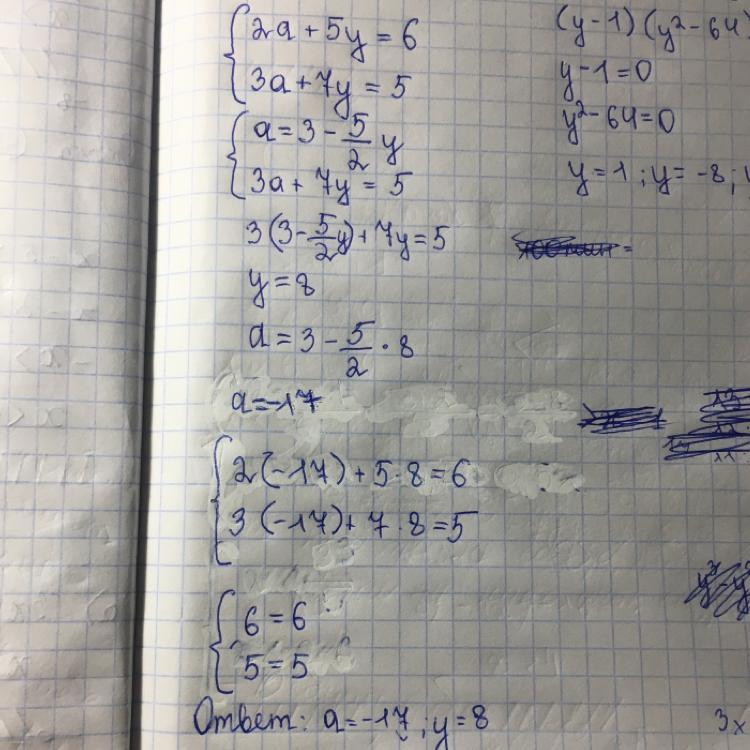 2a + 5y = 6
3a + 7y = 5
a = 3 - 5/2 y
3a + 7y = 5
3(3 - 5/2 y) + 7y = 5
y = 8
a = 3 - 5/2 · 8
a = -17
2(-17) + 5 · 8 = 6
3(-17) + 7 · 8 = 5
6 = 6
5 = 5
Ответ: a = -17; y = 8
(y - 1)(y² - 64)
y - 1 = 0
y² - 64 = 0
y = 1; y = -8;
3x